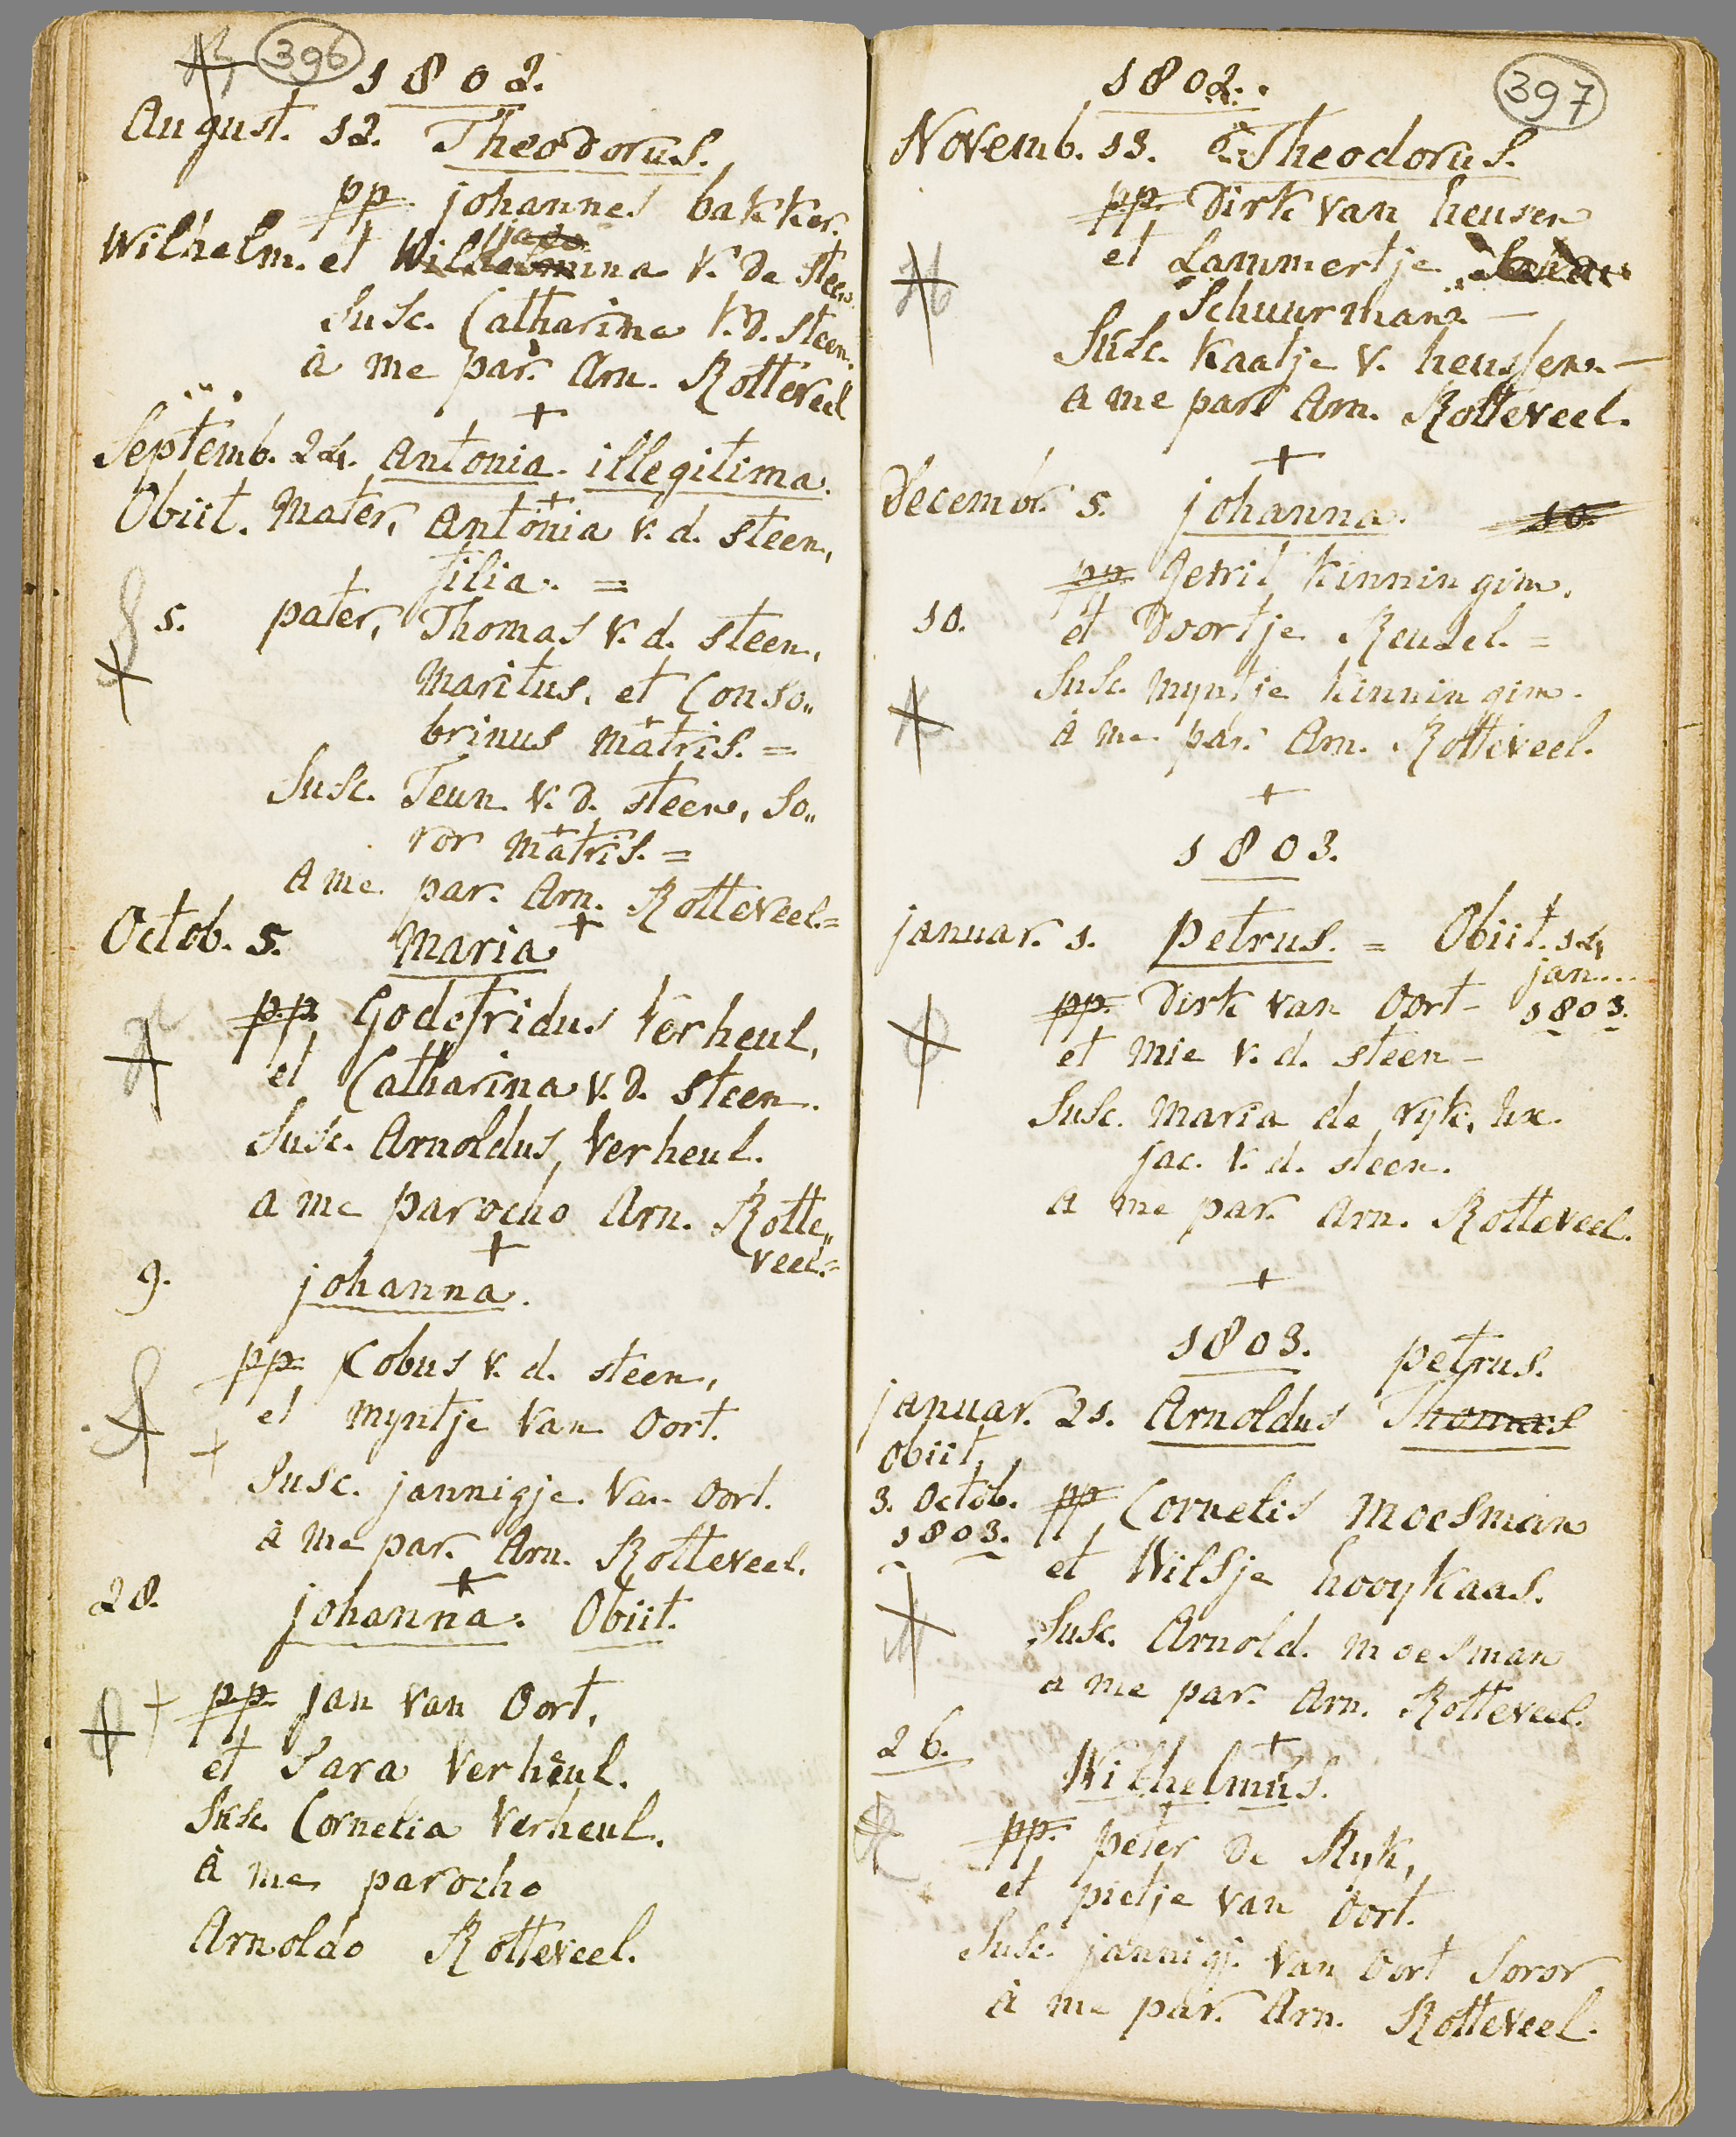 396
1802.
August. 12. Theodorus.
pp. johannes bakker.
Wilhelm. et Wilhelmina v. de steen
Susc. Catharina v. d. steen.
à me par. Arn. Rotteveel
+
Septemb. 24. Antonia. illegitima.
Obiit. Mater, Antonia v. d. steen,
filia. =
5. pater, Thomas v. d. steen,
Maritus, et Conso„
brinus matris. =
Susc. Teun v. d. steen, So„
ror matris. =
A me par. Arn. Rotteveel=
+
Octob. 5. Maria
pp. Godefridus Verheul,
et Catharina v. d. steen.
Susc. Arnoldus Verheul.
a me parocho Arn. Rotte„
veel.=
+
9. johanna.
pp Cobus v. d. steen,
et myntje van Oort.
Susc. jannigje van Oort.
à me par. Arn. Rotteveel.
+
28. johanna. Obiit.
pp. jan van Oort,
et Sara Verheul.
Susc. Cornelia Verheul.
à me parocho
Arnoldo Rotteveel.
397
1802.
Novemb. 13. Theodorus.
pp. Dirk van heusen
et Lammertje
Schuurman —
Susc. Kaatje v. heussen. —
A me par. Arn. Rotteveel.
+
Decembr. 5. johanna. 10.
pp. Gerrit kinningim.
10. et Doortje Reusel. =
Susc. myntje kinningim.
à me par. Arn. Rotteveel.
+
1803.
januar. 1. Petrus. = Obiit. 14
jan...
pp. Dirk van Oort - 1803.
et mie v. d. steen -
Susc. Maria de ryk, ux.
jac. v. d. steen.
a me par. Arn. Rotteveel.
+
1803. petrus.
januar. 21. Arnoldus Thomas
Obiit,
3. Octob. pp Cornelis moesman
1803.
et Wilsje hooykaas.
Susc. Arnold. moesman
a me par. Arn. Rotteveel.
26. +
Wilhelmus.
pp. peter de Ryk,
et pietje van Oort.
Susc. jannigj. van Oort Soror
à me par. Arn. Rotteveel.